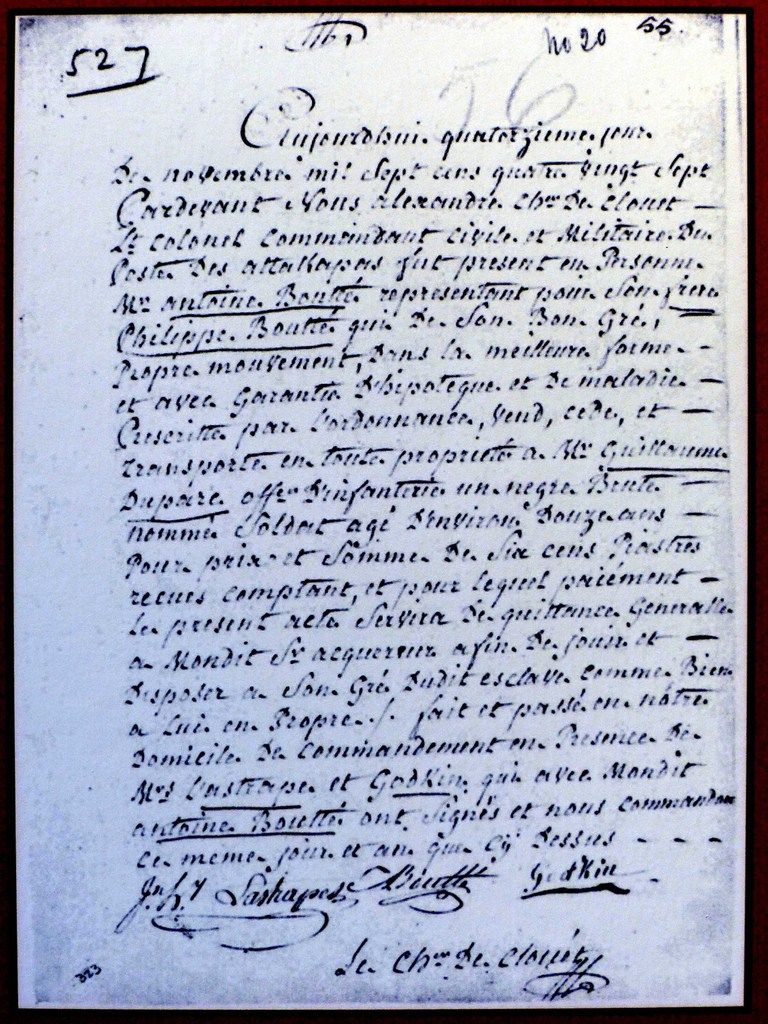 527
no 20
55
56
Aujourdhui quatorzieme jour
De novembre mil Sept cens quatre vingt Sept
Pardevant Nous alexandre Cher De Clouet —
Lt Colonel Commandant Civile et Militaire Du
Poste Des attakapas fut present en Personne
Mr antoine Boutté representant pour Son frere
Philippe Boutté qui De Son Bon Gré, —
Propre mouvement, Dans la meilleure forme —
et avec Garantie D'hipoteque et De maladie —
Prescritte par L'ordonnance, Vend, cede, et —
transporte en toute proprieté a Mr Guillaume
Duparc offer D'infanterie un negre Brute —
nommé Soldat agé D'environ Douze ans —
Pour prix et Sömme De Six cens Piastres
recues comptant, et pour lequel paiément —
Le present acte Servira De quittance Generalle
a Mondit Sr acquereur afin De jouir et —
Disposer a Son Gré Dudit esclave comme Bien
a Lui en Propre ./. fait et passé en nôtre
Domicile De Commandement en Presence De
Mrs Lastrape et Godkin qui avec Mondit
antoine Boutté ont Signés et nous Commandant
Ce meme jour et an que Cy Dessus - - - -
Jn Hy Lastrapes Boutté Godkin
Le Cher De Cloüet
323